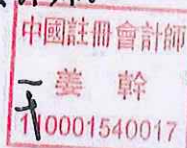 中國註冊會計師
姜 幹
110001540017